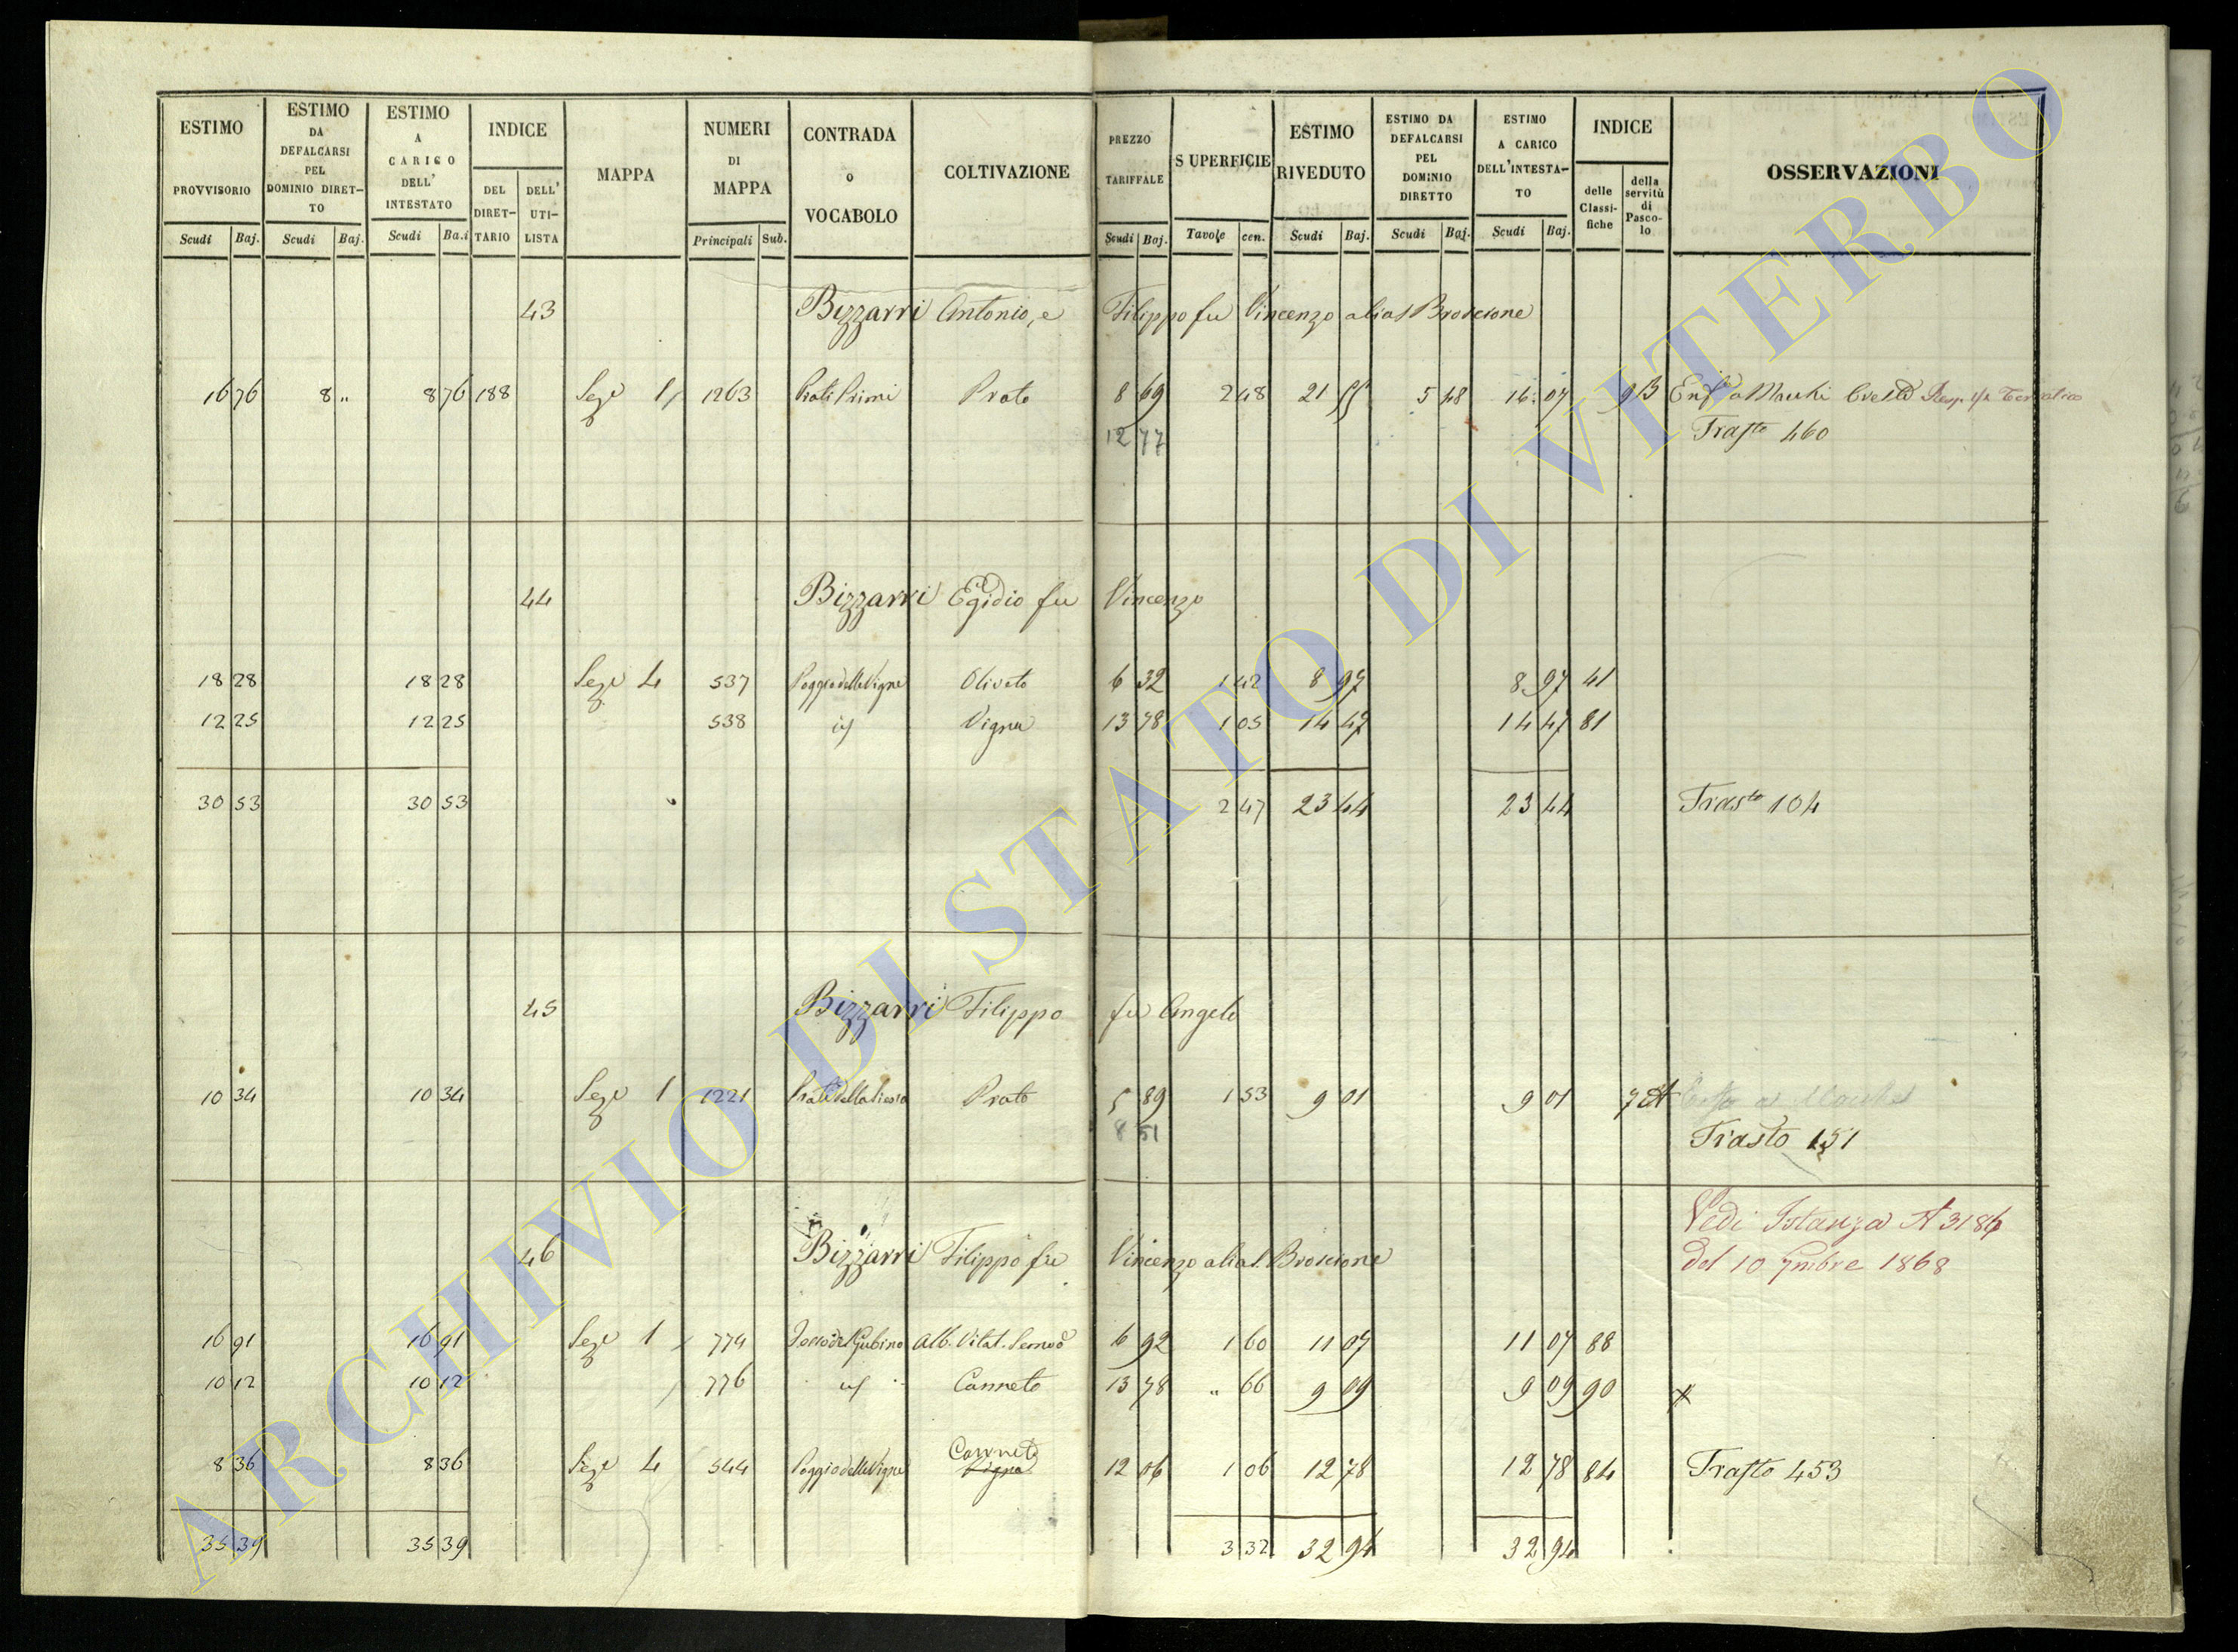 ESTIMO PROVVISORIO Scudi Baj.
ESTIMO DA DEFALCARSI PEL DOMINIO DIRETTO Scudi Baj.
ESTIMO A CARICO DELL' INTESTATO Scudi Ba.i
INDICE DEL DIRETTARIO DELL' UTILISTA
MAPPA
NUMERI DI MAPPA Principali Sub.
CONTRADA o VOCABOLO
COLTIVAZIONE
PREZZO TARIFFALE Scudi Baj.
SUPERFICIE Tavole cen.
ESTIMO RIVEDUTO Scudi Baj.
ESTIMO DA DEFALCARSI PEL DOMINIO DIRETTO Scudi Baj.
ESTIMO A CARICO DELL'INTESTATO Scudi Baj.
INDICE delle Classifiche della servitù di Pascolo
OSSERVAZIONI
43 Bizzarri Antonio, e Filippo fu Vincenzo alias Broscione
16 76 8 „ 8 76 188 Sez.e 1 1263 Prati Primi Prato 8 69 2 48 21 55 5 48 16 07 9B
12 77 Trasto 460
44 Bizzarri Egidio fu Vincenzo
18 28 18 28 Sez.e 4 537 Poggio delle Vigne Olivato 6 32 1 42 8 97 8 97 41
12 25 12 25 538 id Vigna 13 78 1 05 14 47 14 47 81
30 53 30 53 2 47 23 44 23 44 Trasto 104
45 Bizzarri Filippo fu Angelo
10 34 10 34 Sez.e 1 1221 Prato 5 89 1 53 9 01 9 01 7A
8 51 Trasto 151
Vedi Istanza A 3186
del 10 9mbre 1868
46 Bizzarri Filippo fu Vincenzo alias Broscione
16 91 16 91 Sez.e 1 774 Alb. Vitat. 6 92 1 60 11 07 11 07 88
10 12 10 12 776 id Canneto 13 78 „ 66 9 09 9 09 90
Canneto
8 36 8 36 Sez.e 4 544 Poggio delle Vigne Vigna 12 06 1 06 12 78 12 78 84 Trasto 453
35 39 35 39 3 32 32 94 32 94
ARCHIVIO DI STATO DI VITERBO